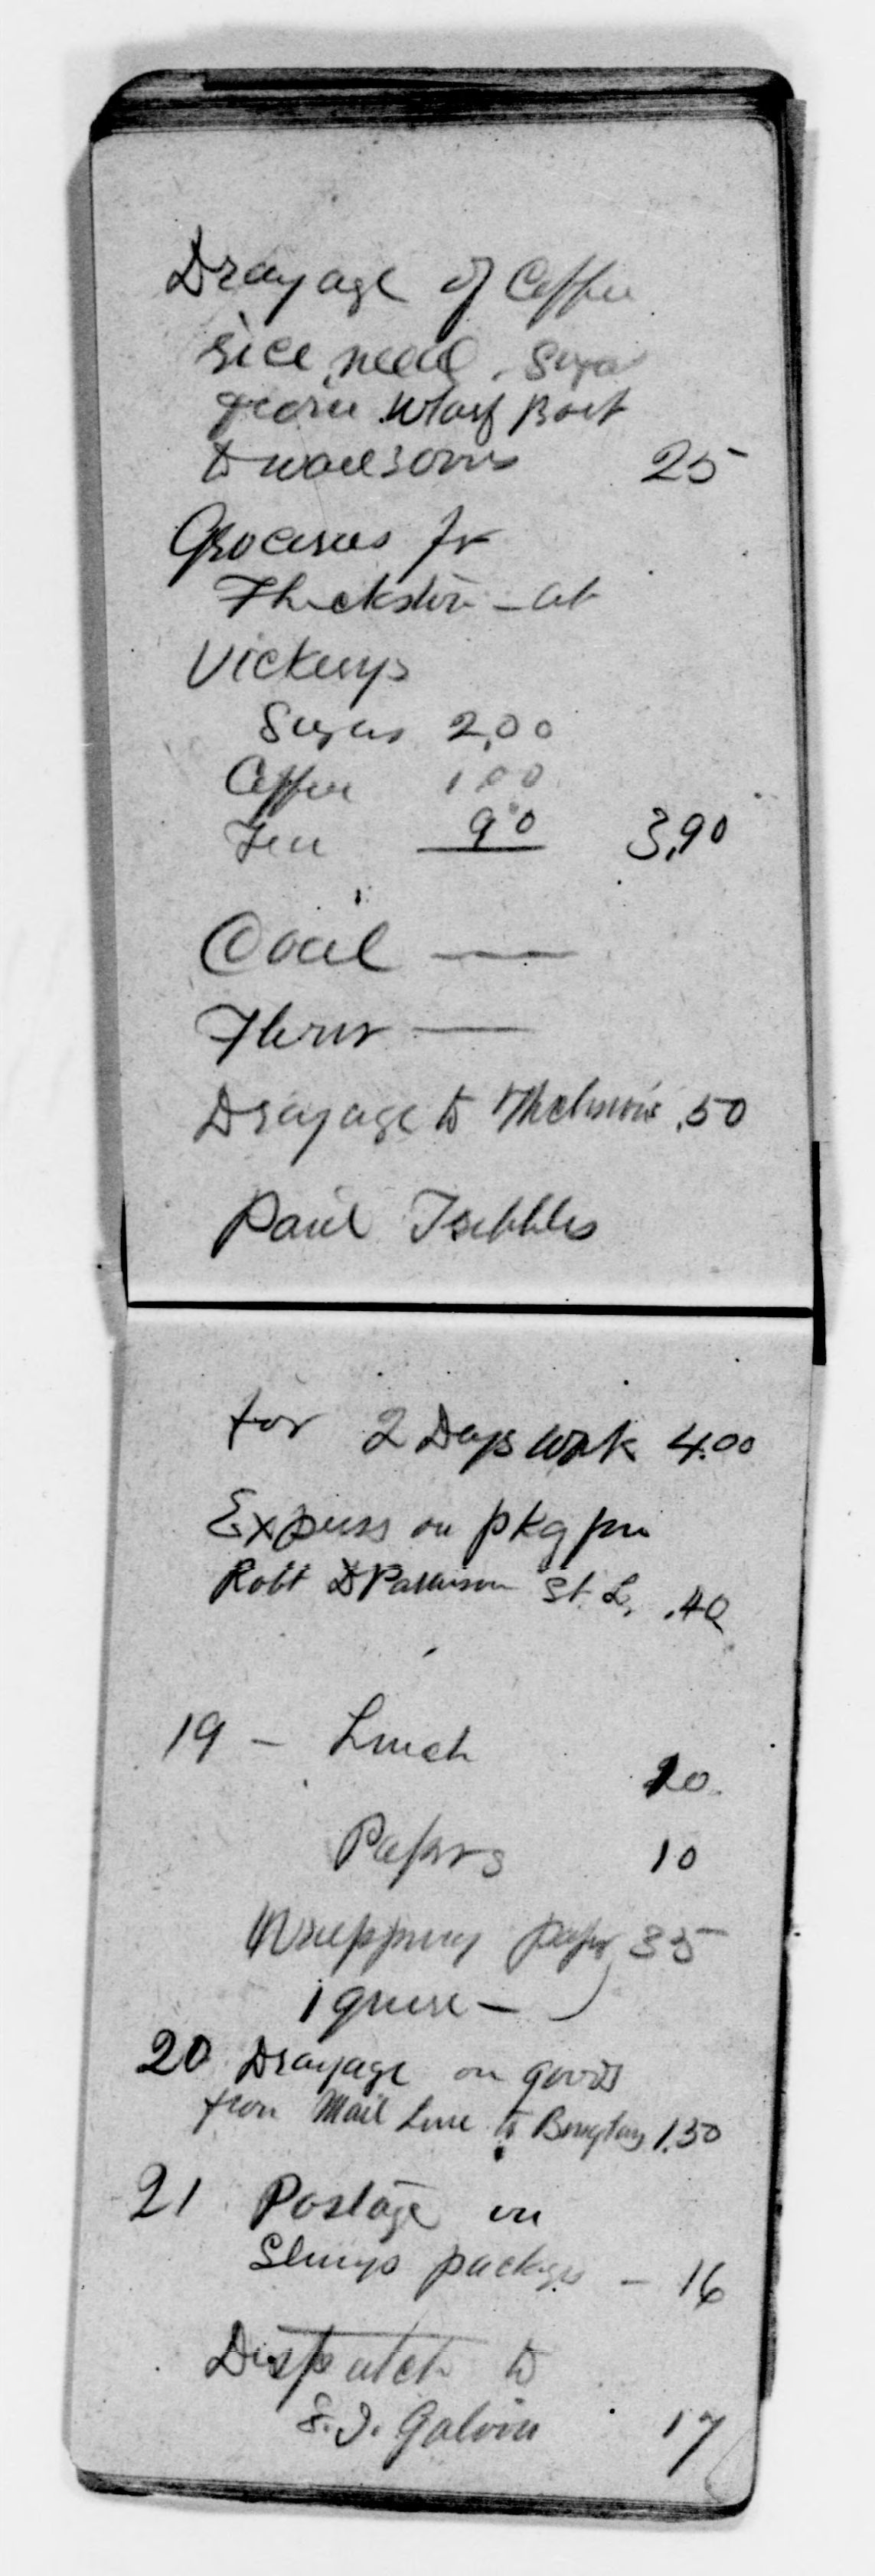 Drayage of Coffee
rice, meal, Sugar
from Wharf Boat
to warerooms 25
Groceries fr
Thickston - at
Vickerys
Sugar 2,00
Coffee 100
Tea 90 3,90
Coal —
Flour —
Drayage to .50
Paul Tribbles
for 2 Days work 4.00
Express on pkg fm
Robt D Patterson St. L. .40
19 - Lunch 20
Papers 10
Wrapping paper 35
1 quire -
20 Drayage on goods
from Mail Line to 1.50
21 Postage on
package - 16
Dispatch to
S. J. Galvin 17